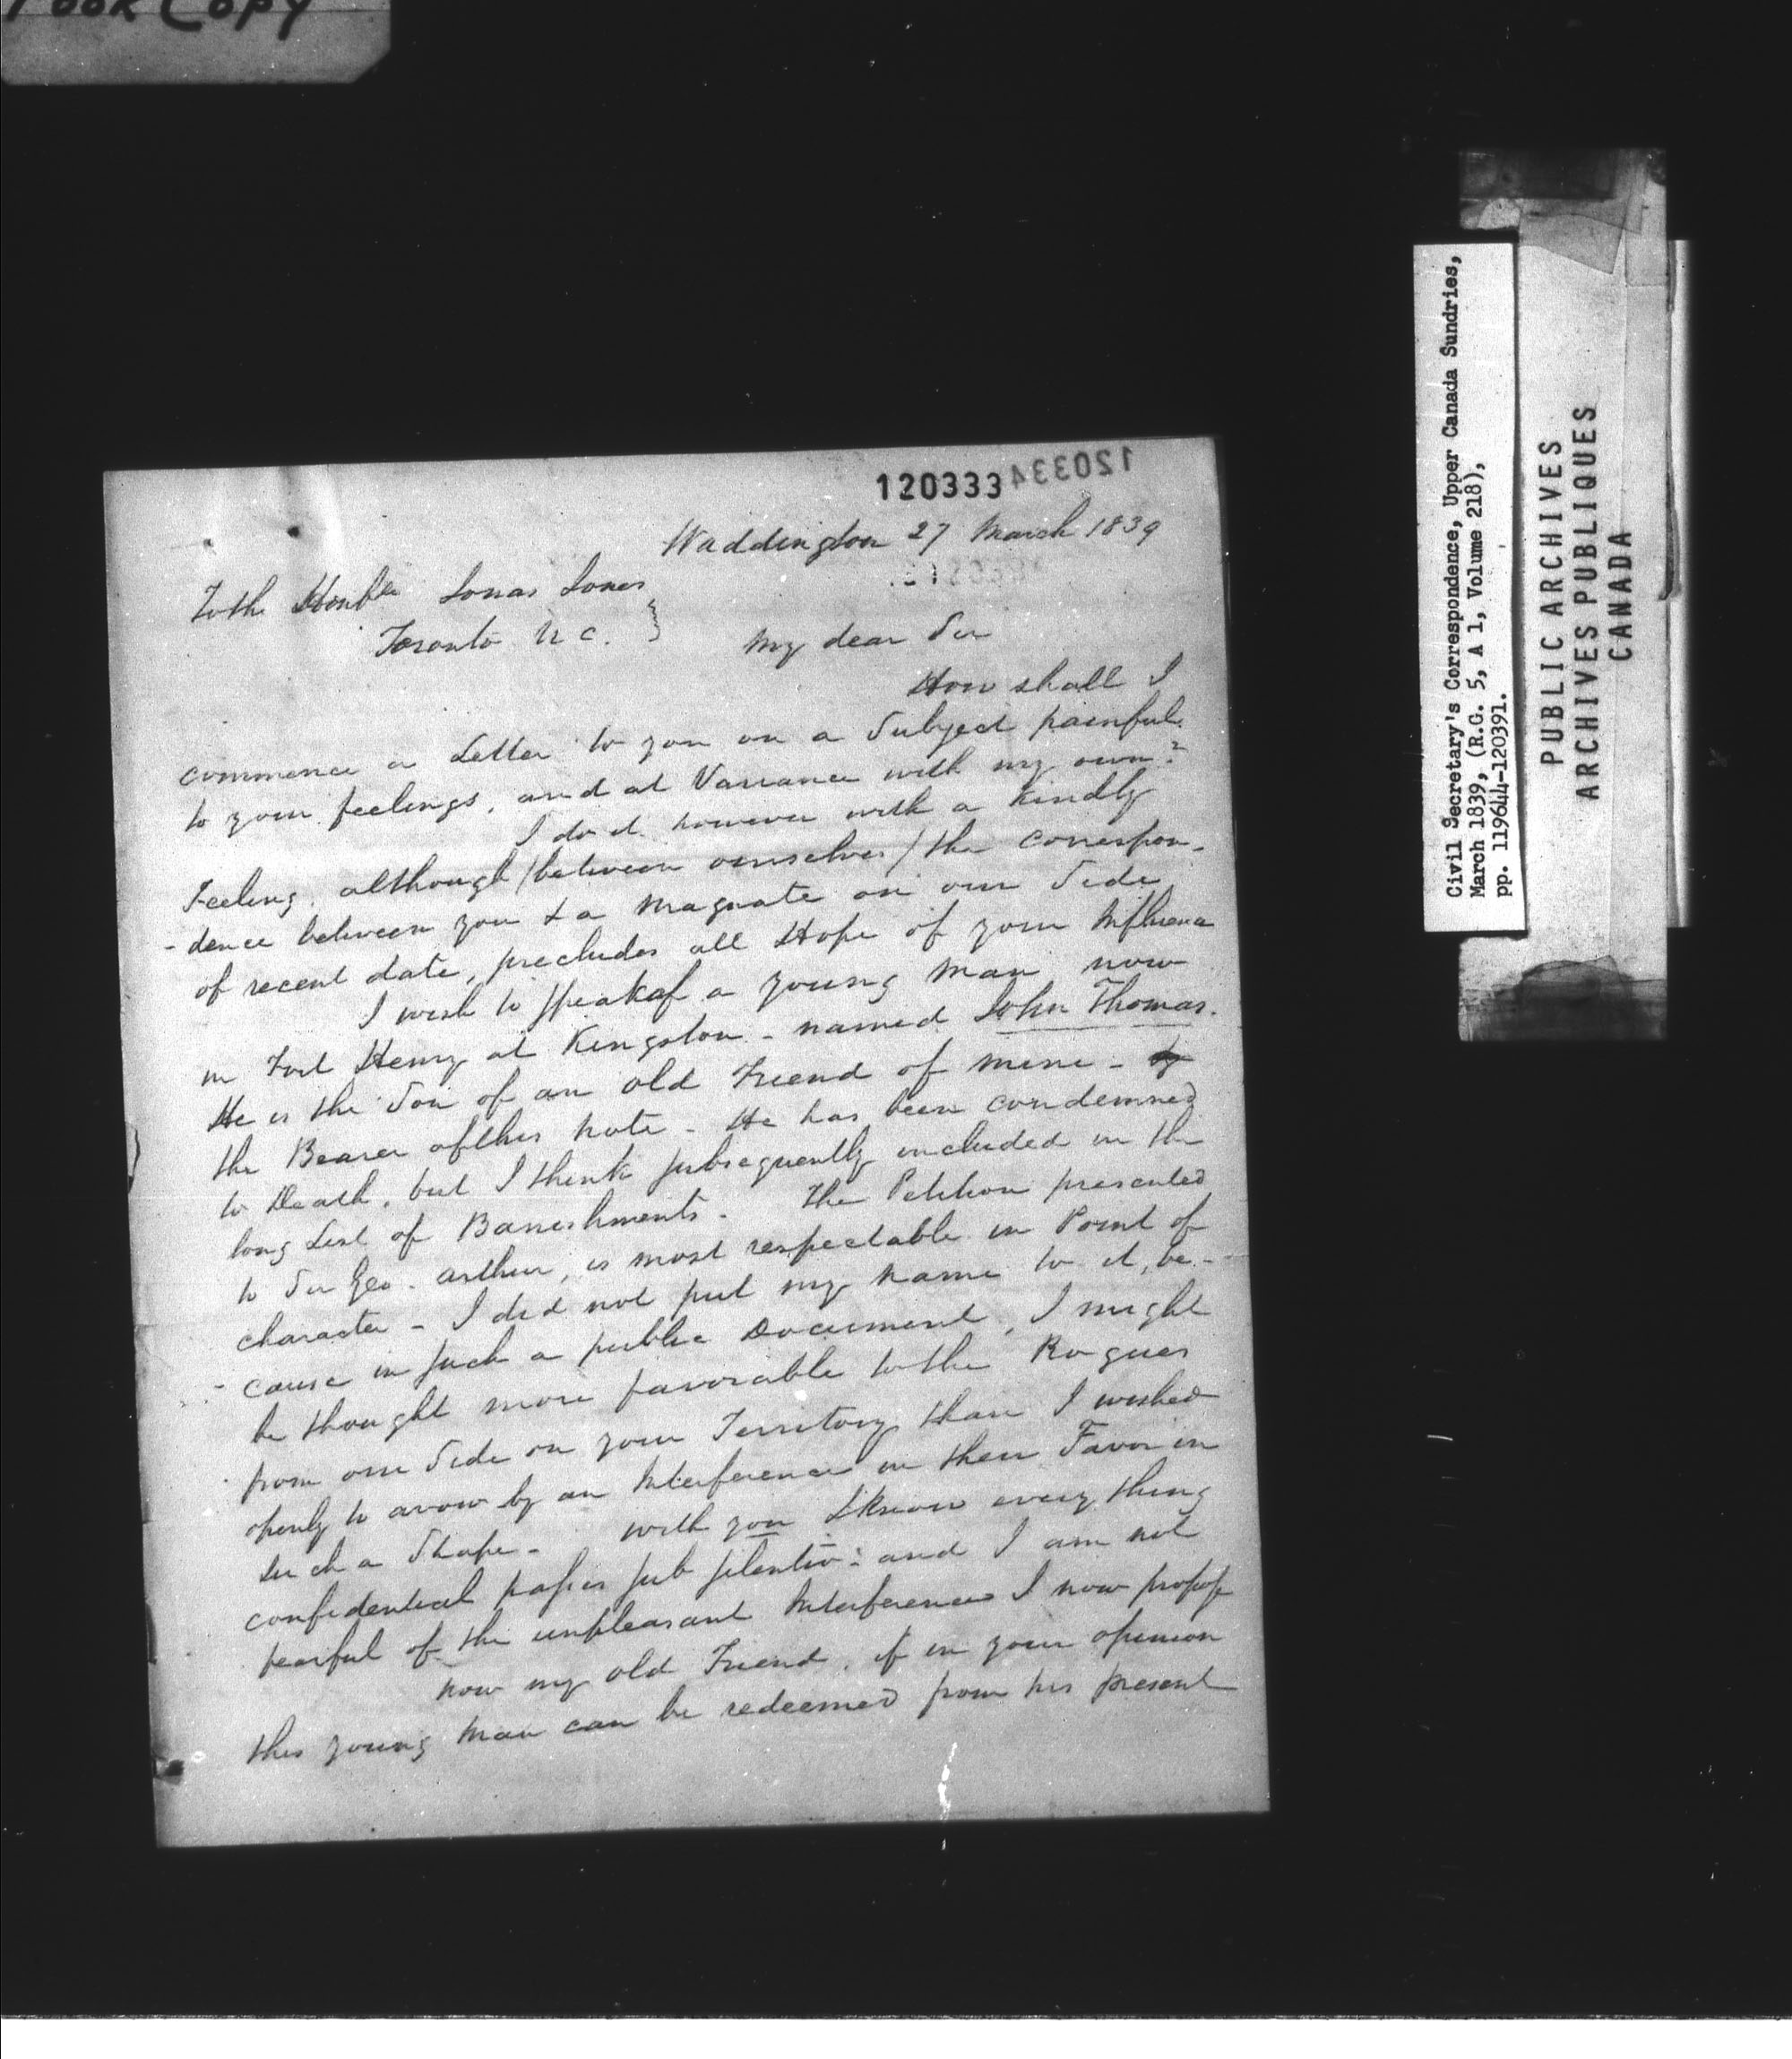 Poor Copy
120333
120334
Waddington 27 March 1839
To the Honble Jonas Jones
Toronto U C. }
My dear Sir
How shall I
commence a Letter to you on a Subject painful
to your feelings, and at Variance with my own?
I do it however with a kindly
Feeling, although /between ourselves/ the correspon-
-dence between you & a Magnate on our Side
of recent date, precludes all Hope of your Influence
I wish to speak of a young Man now
in Fort Henry at Kingston - named John Thomas.
He is the Son of an old Friend of mine -
the Bearer of this note - He has been condemned
to Death, but I think subsequently included in the
long List of Banishments - The Petition presented
to Sir Geo. Arthur, is most respectable in Point of
character - I did not put my name to it, be-
- cause in such a public Document, I might
be thought more favorable to the Rogues
from our Side on your Territory than I wished
openly to avow by an Interference in their Favor in
such a Shape - with you I know every thing
confidential passes sub silentio: and I am not
fearful of the unpleasant Interference I now propose
Now my old Friend, if in your opinion
this young Man can be redeemed from his present
Civil Secretary's Correspondence, Upper Canada Sundries,
March 1839, (R.G. 5, A 1, Volume 218),
pp. 119644-120391.
PUBLIC ARCHIVES
ARCHIVES PUBLIQUES
CANADA